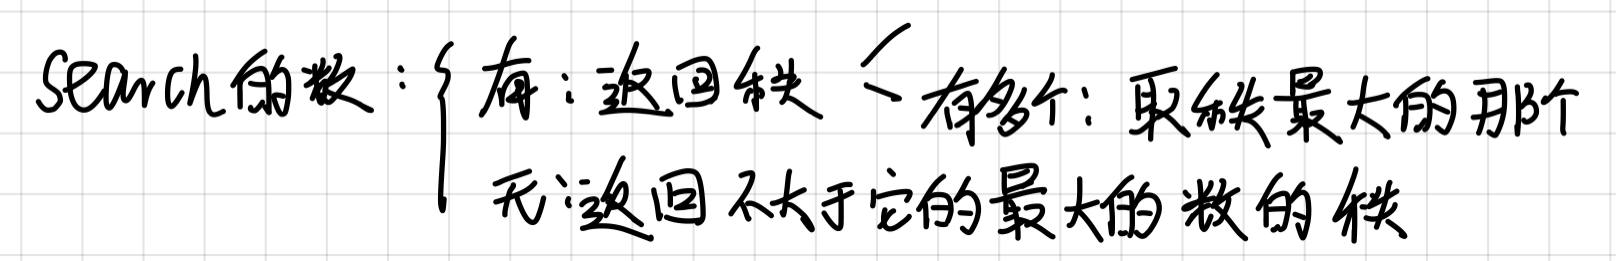 search的数：{ 有：返回秩 < 有多个：取秩最大的那个
无：返回不大于它的最大的数的秩